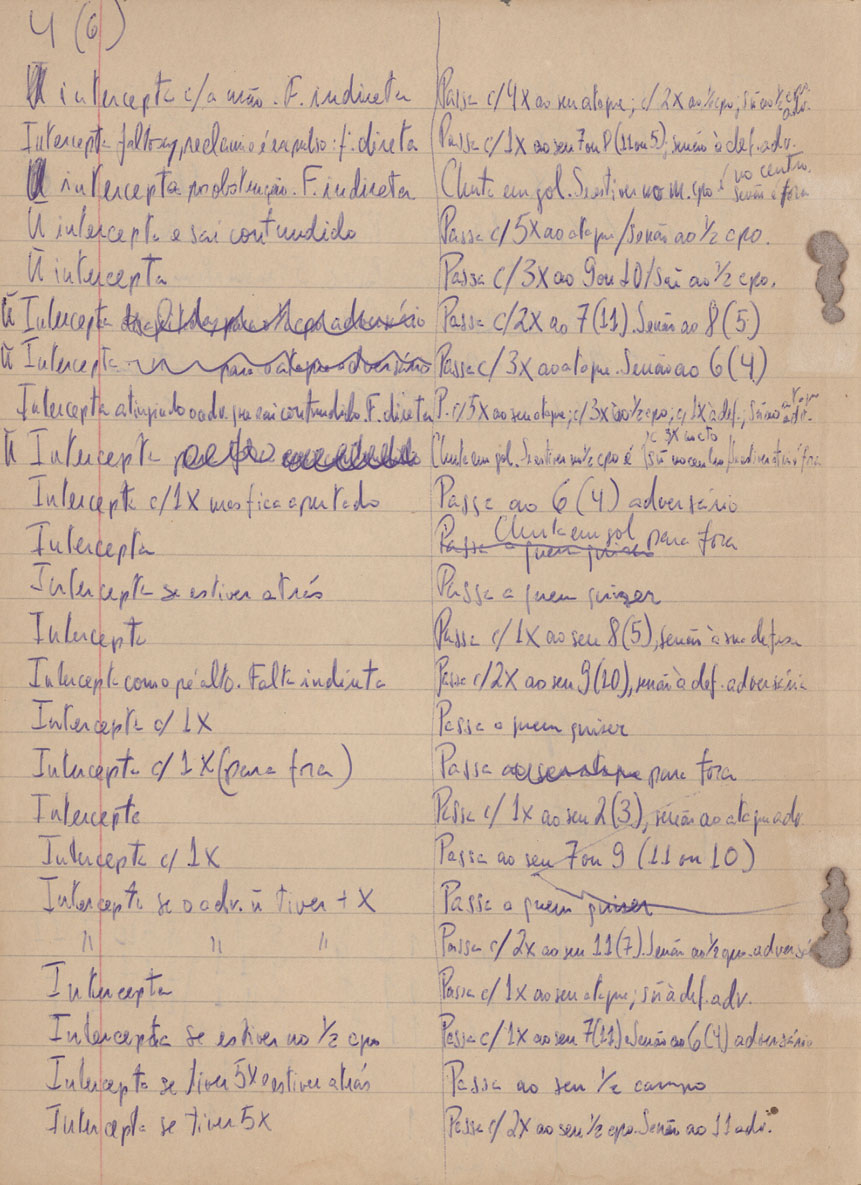 4 (6)
ñ intercepta c/a mão. F. indireta
Passa c/4X ao seu ataque; c/2X ao ½ cpo; senão ao ½ cpo adv.
Intercepta, reclama e é expulso: f. direta
Passa c/1X ao seu 7 ou 8 (11 ou 5); senão à def. adv.
ñ intercepta por obstrução. F. indireta
Chuta em gol. Se estiver no m. cpo é no centro, senão é fora
ñ intercepta e sai contundido
Passa c/5X ao ataque/senão ao ½ cpo.
ñ intercepta
Passa c/3X ao 9 ou 10/senão ao ½ cpo.
ñ Intercepta
Passa c/2X ao 7 (11). Senão ao 8 (5)
ñ Intercepta para o ataque adversário
Passa c/3X ao ataque. Senão ao 6 (4)
Intercepta atingindo o adv. que sai contundido. F. direta
P. c/5X ao seu ataque; c/3X ao ½ cpo; c/1X à def.; senão ao adv.
ñ Intercepta
Chuta em gol. Se estiver no ½ cpo é c/3X senão no centro, fora
Intercepta c/1X mas fica apertado
Passa ao 6 (4) adversário
Intercepta
Passa a quem quiser Chuta em gol para fora
Intercepta se estiver atrás
Passa a quem quiser
Intercepta
Passa c/1X ao seu 8 (5), senão à sua defesa
Intercepta com o pé alto. Falta indireta
Passa c/2X ao seu 9 (10), senão à def. adversária
Intercepta c/ 1X
Passa a quem quiser
Intercepta c/ 1X (para fora)
Passa ao seu ataque para fora
Intercepta
Passa c/1X ao seu 2 (3), senão ao ataque adv.
Intercepta c/ 1X
Passa ao seu 7 ou 9 (11 ou 10)
Intercepta se o adv. ñ tiver + X
Passa a quem quiser
" " "
Passa c/2X ao seu 11 (7). Senão ao ½ cpo. adversá
Intercepta
Passa c/1X ao seu ataque; senão à def. adv.
Intercepta se estiver no ½ cpo
Passa c/1X ao seu 7 (11). Senão ao 6 (4) adversário
Intercepta se tiver 5X e estiver atrás
Passa ao seu ½ campo
Intercepta se tiver 5X
Passa c/2X ao seu ½ cpo. Senão ao 11 adv.